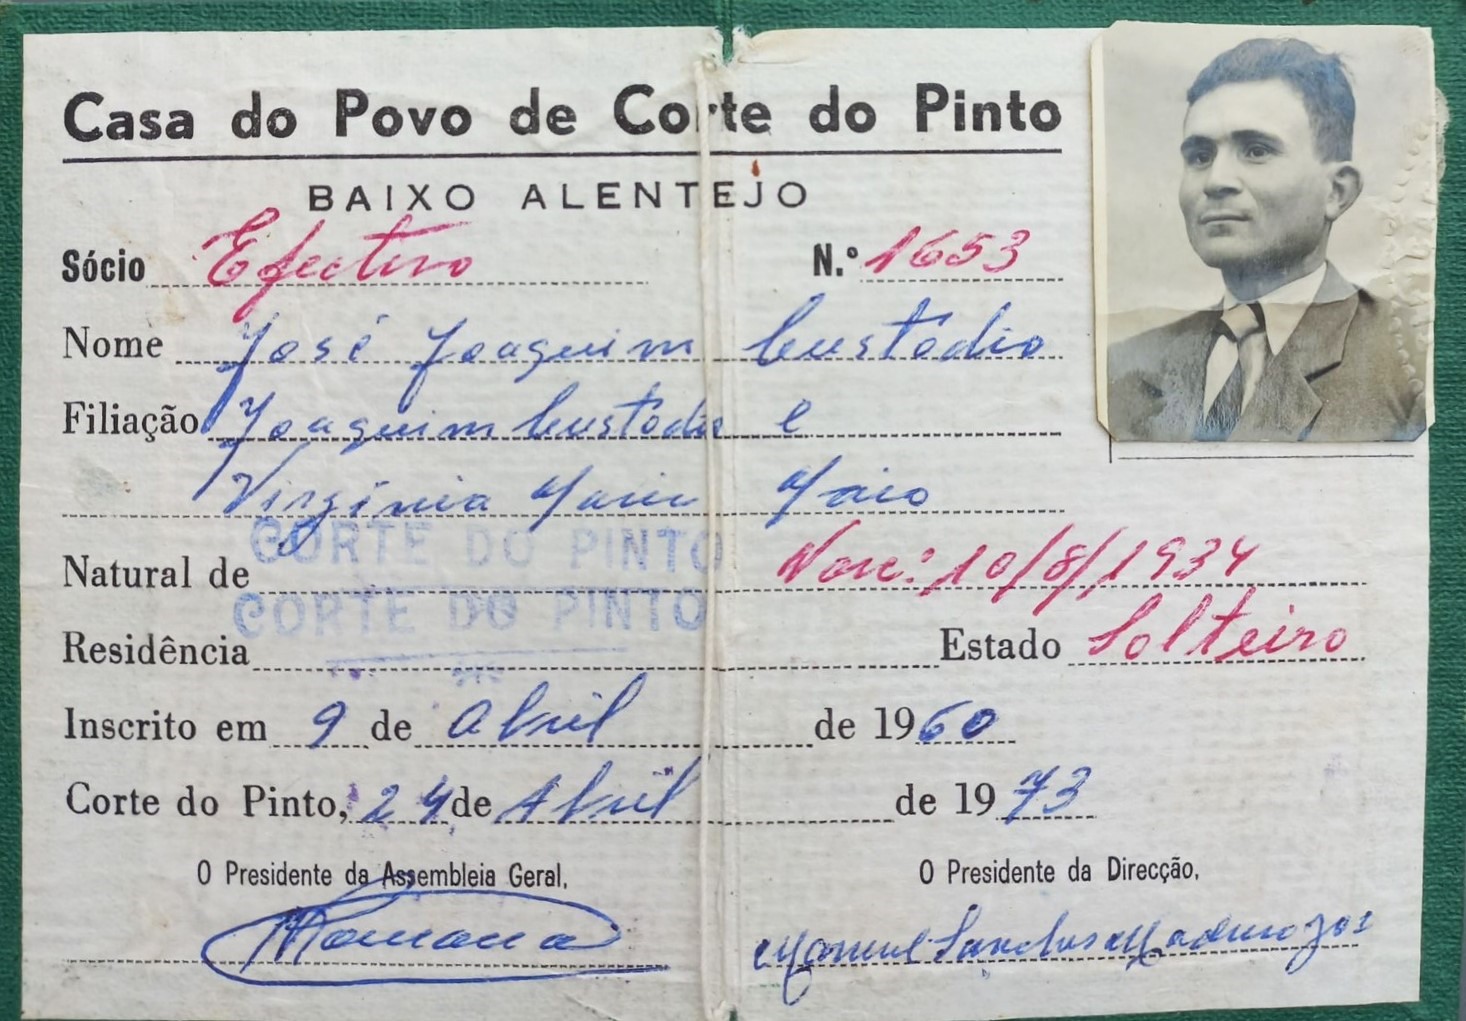 Casa do Povo de Corte do Pinto
BAIXO ALENTEJO
Sócio Efectivo N.º 1653
Nome José Joaquim Custódio
Filiação Joaquim Custódio e
Virgínia Maria
CORTE DO PINTO
Natural de Nasc: 10/8/1934
CORTE DO PINTO
Residência Estado Solteiro
Inscrito em 9 de Abril de 1960
Corte do Pinto, 24 de Abril de 1973
O Presidente da Assembleia Geral, O Presidente da Direcção,
Manuel